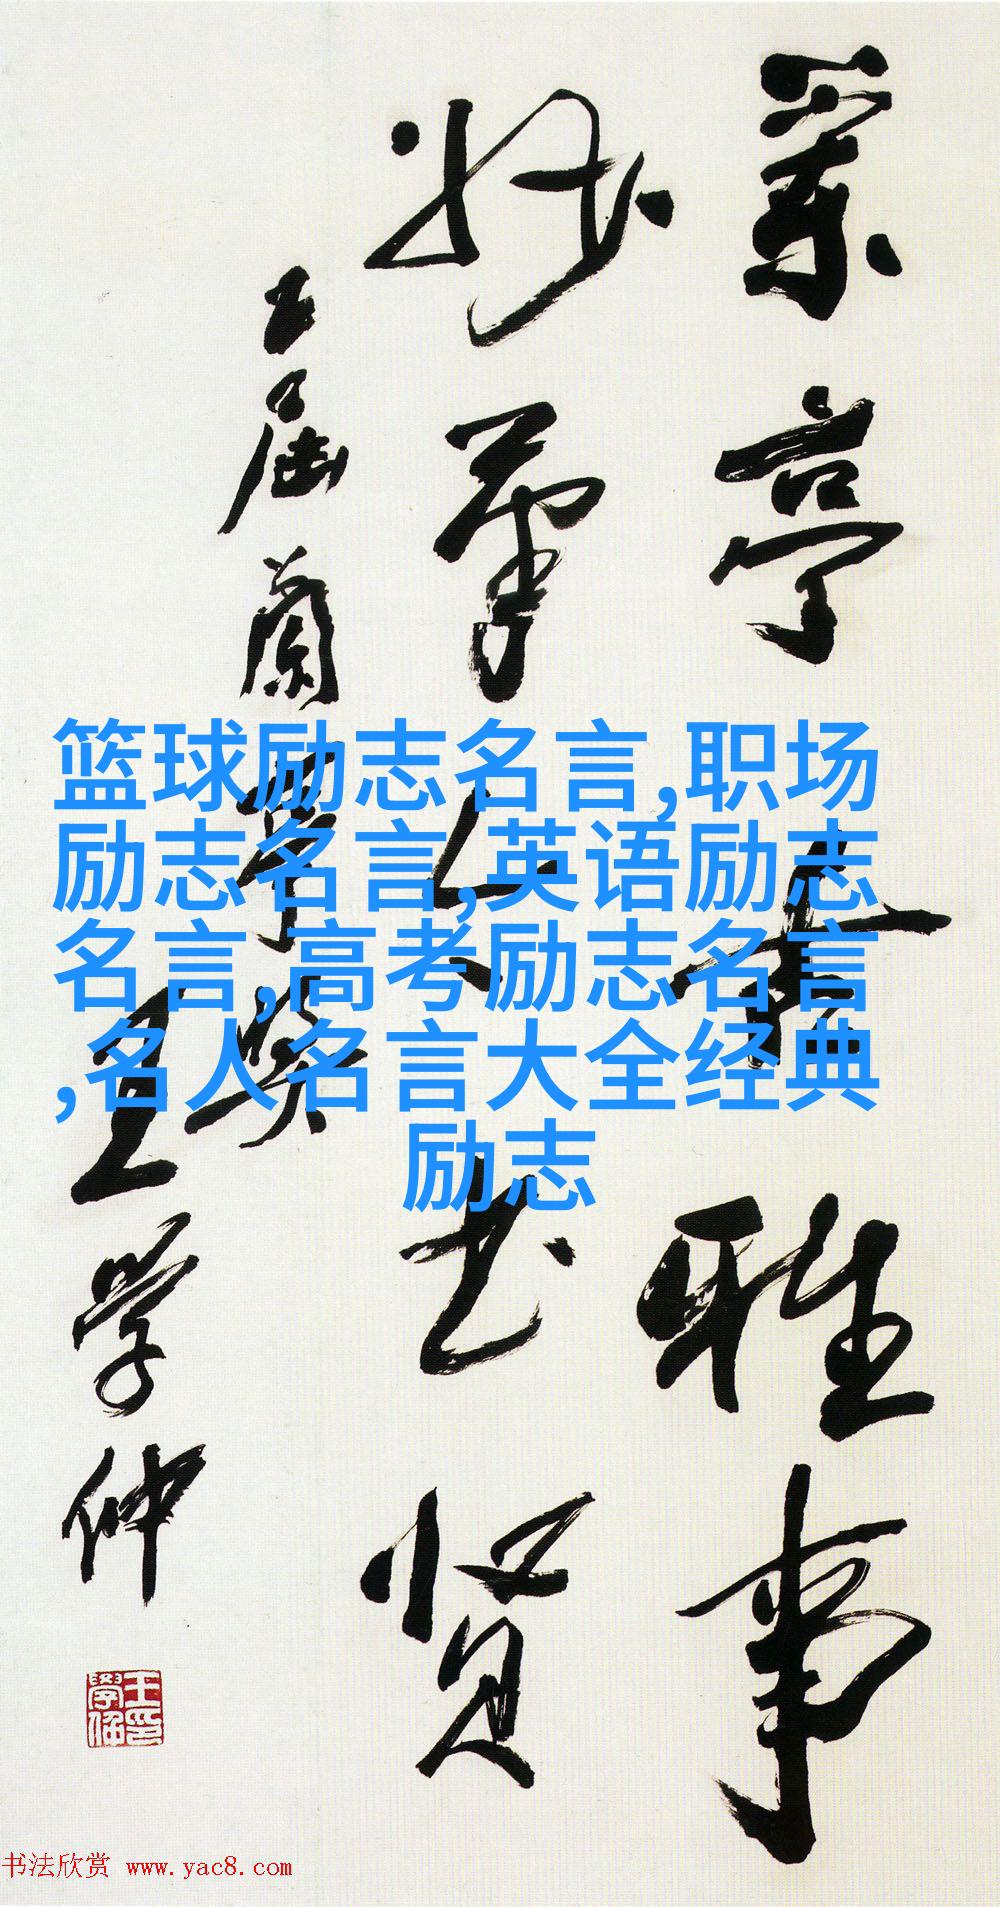 兰亭无雅事
妙笔人书贤
五届兰亭奖
王学仲
篮球励志名言,职场
励志名言,英语励志
名言,高考励志名言
,名人名言大全经典
励志
书法欣赏 www.yac8.com